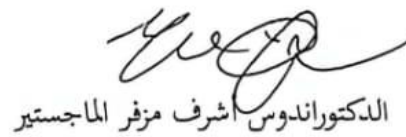 الدكتوراندوس أشرف مزفر الماجستير